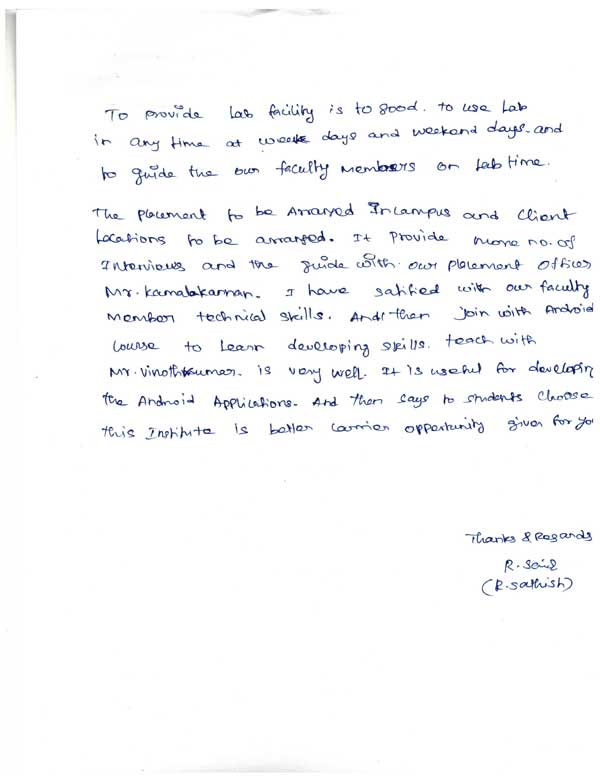 To provide Lab facility is to good. to use Lab
in any time at week days and weekend days. and
to guide the our faculty members on Lab time.
The placement to be Arranged Incampus and Client
Locations to be arranged. It provide more no. of
Interviews and the guide with our placement officer
Mr. Kamalakannan. I have satified with our faculty
member technical skills. And then join with Android
course to Learn developing skills. teach with
Mr. Vinothkumar. is very well. It is useful for developin
the Android Applications. And then says to students choose
this Institute is better carrier opportunity given for yo
Thanks & Regards
R.
(R. Sathish)